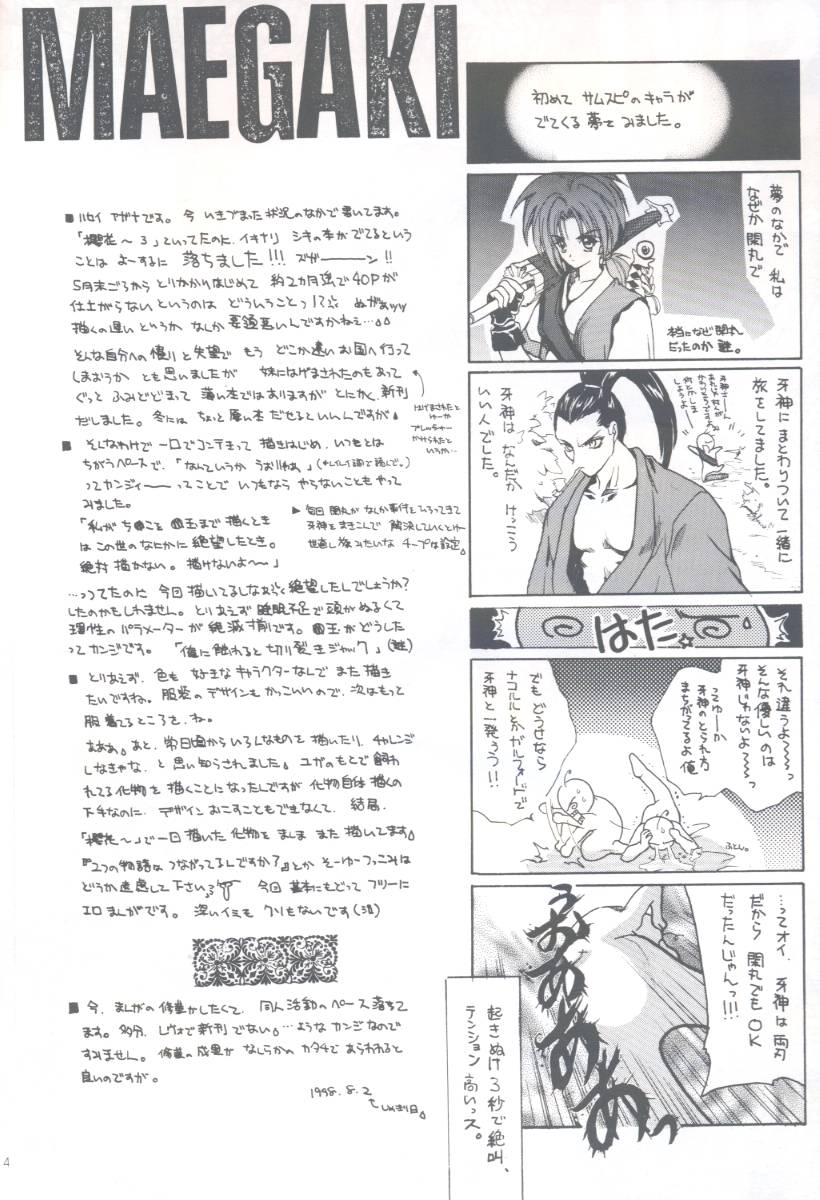 MAEGAKI
■ ハロイ アガナです。今 いきづまった状況のなかで書いてます。
「櫻花〜3」といってたのに、イキナリ シキの本がでてるという
ことは よーするに 落ちました!!! ズガーーーン!!
5月末ごろから とりかかりはじめて 約2カ月強で40Pが
仕上がらないというのは どういうことっ!?
描くの遅い どうか なんか 要領悪いんですかねえ…
そんな自分への憤りと失望で もう どこか遠いお国へ行って
しまおうか とも思いましたが 妹にはげまされたのもあって
ぐっと ふみとどまって 薄い本ではありますが とにかく、新刊
だしました。冬には ちょっと厚い本 だせるといいんですが
はげまされたと
ゆーか
プレッシャー
かけられたと
いうか…
■ そんなわけで 一日でコンテきって 描きはじめ、いつもとは
ちがうペースで、「なんていうか うおりゃあ」
ってカンジィーーってことで いつもなら やらないことも やって
みました。
▶ 毎回 閑丸が なんか事件を ひろってきて
牙神を まきこんで 解決していくとゆー
世直し旅みたいな チープな設定。
「私が ち●こと ●玉まで 描くとき
は この世のなにかに 絶望したとき。
絶対 描かない。描けないよ〜〜」
…ってたのに 今回 描いてるしなあ 絶望したんでしょうか?
したのかもしれません。とりあえず 睡眠不足で 頭がぬるくて
理性の パラメーターが 絶滅寸前です。●玉が どうした
ってカンジです。「俺に触れると 切り裂きジャック」(謎)
■ とりあえず、色も 好きなキャラクターなんで また 描き
たいですね。服装の デザインも かっこいいので、次はもって
服 着てるところを、ね。
あああ。あと、常日頃から いろんなものを 描いたり、チャレンジ
しなきゃな、と 思い知らされました。ユガのもとで 飼わ
れてる化物を 描くことに なったんですが 化物自体 描くの
下手なのに、デザイン おこすことも できなくて、結局
「櫻花〜」で一回 描いた 化物を まんま また 描いてます。
『2つの物語は つながってるんですか?』とか そーゆーつっこみは
どうか 遠慮して 下さい 今回 基本にもどって フツーに
エロまんがです。深いイミも クソもないです(泣)
■ 今、まんがの 修業がしたくて、同人活動の ペース 落ちて
ます。多分、レヴォで 新刊 でない。…ような カンジなので
すみません。修業の成果が なんらかの カタチで あらわれると
良いのですが。
1998.8.2
しめきり日。
初めて サムスピの キャラが
でてくる 夢を みました。
夢のなかで 私は
なぜか 閑丸で
本当になぜ 閑丸
だったのか 謎。
牙神に まとわりついて 一緒に
旅をしてました。
牙神は なんだか けっこう
いい人でした。
はた☆
それ 違うよ〜〜〜っ
そんな優しいのは
牙神じゃないよ〜〜っ
ってゆーか
牙神の とられ方
まちがってるよ 俺
でも どうせなら
ナコルルとか ガルフォードで
牙神と 一発ろう!!
ふとん。
…ってオイ、牙神は 両刃
だから 閑丸でも OK
だったんじゃんっ!!!
うおあああああっ
起きぬけ 3秒で 絶叫、
テンション 高いっス。
4